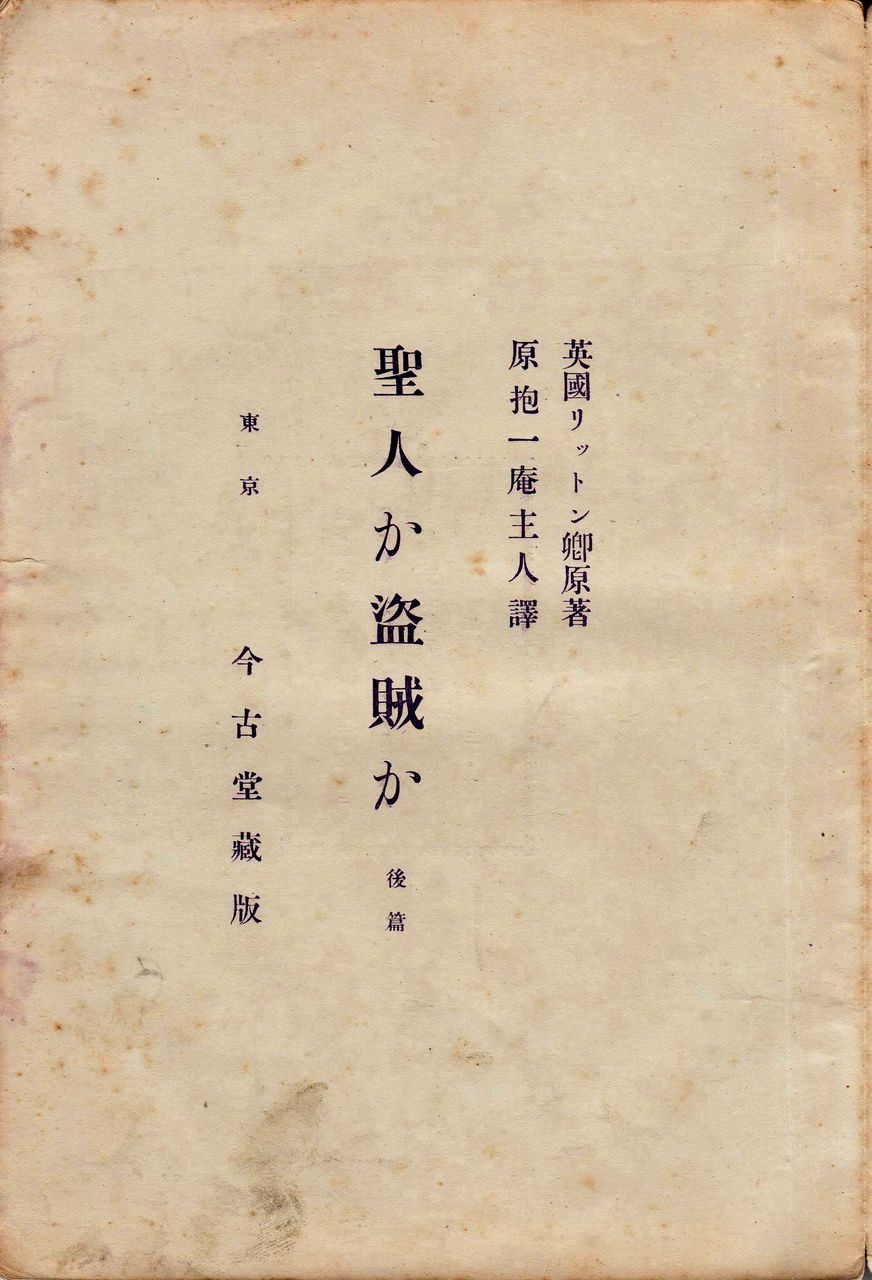 英國リットン卿原著
原抱一庵主人譯
聖人か盜賊か 後篇
東京 今古堂藏版